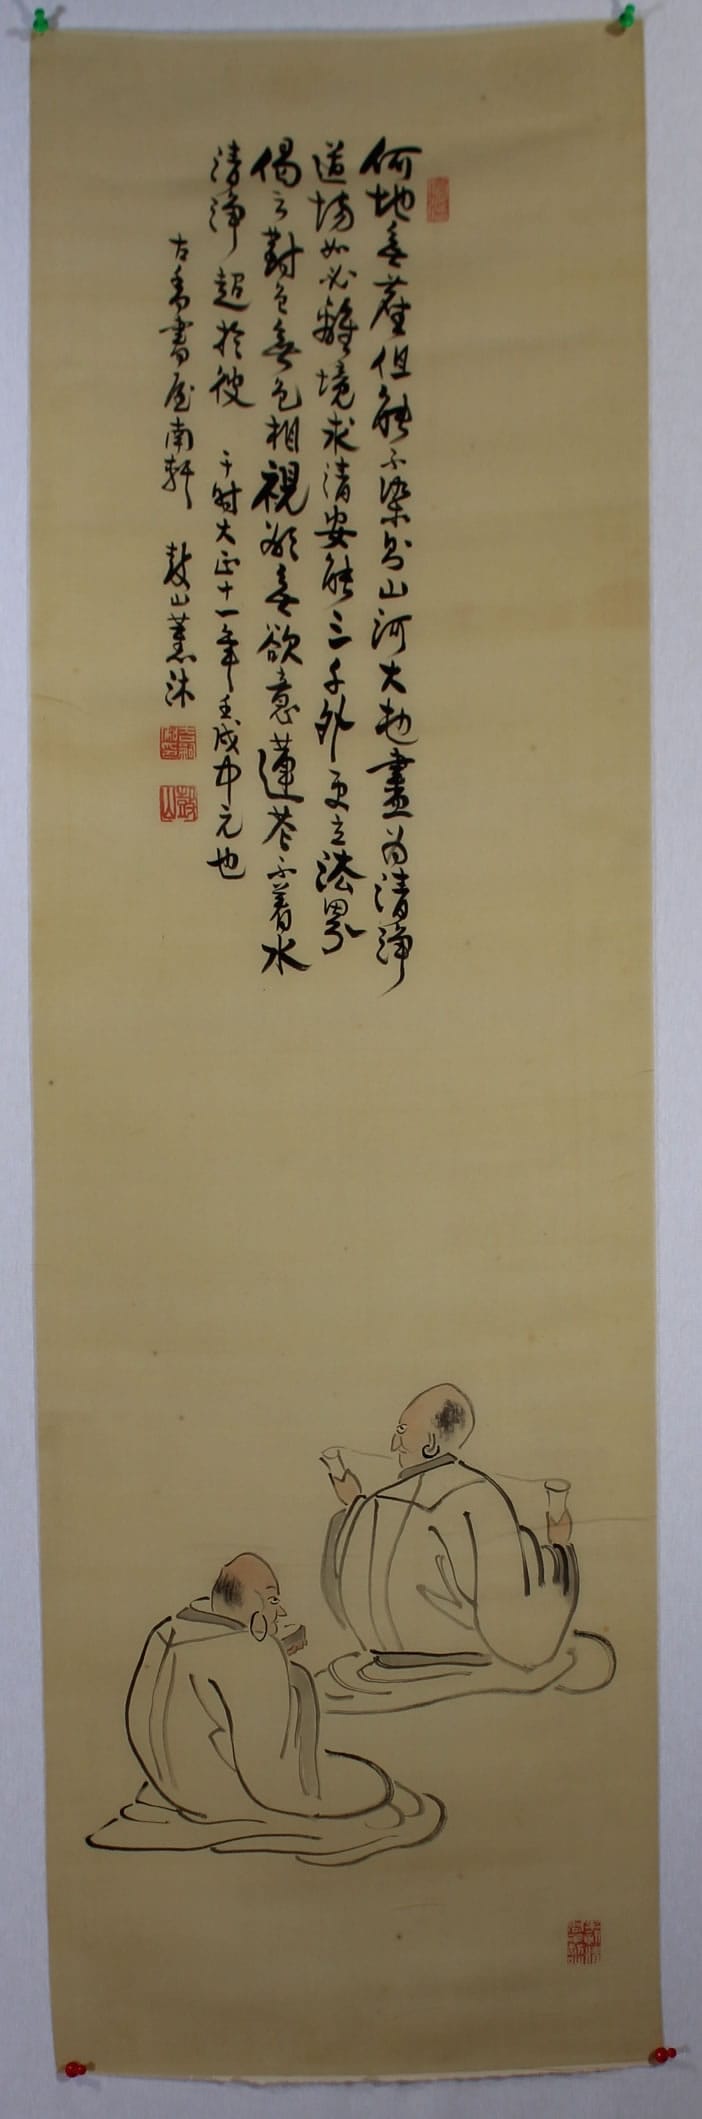 何地無塵但能不染則山河大地盡為清淨
道場如必離境求清安能三千外更立法界
偈云對色無色相視欲無欲意蓮花不著水
清淨超於彼 于时大正十一年壬戌中元也
古香書屋南軒 鼓山薰沐
鼓山